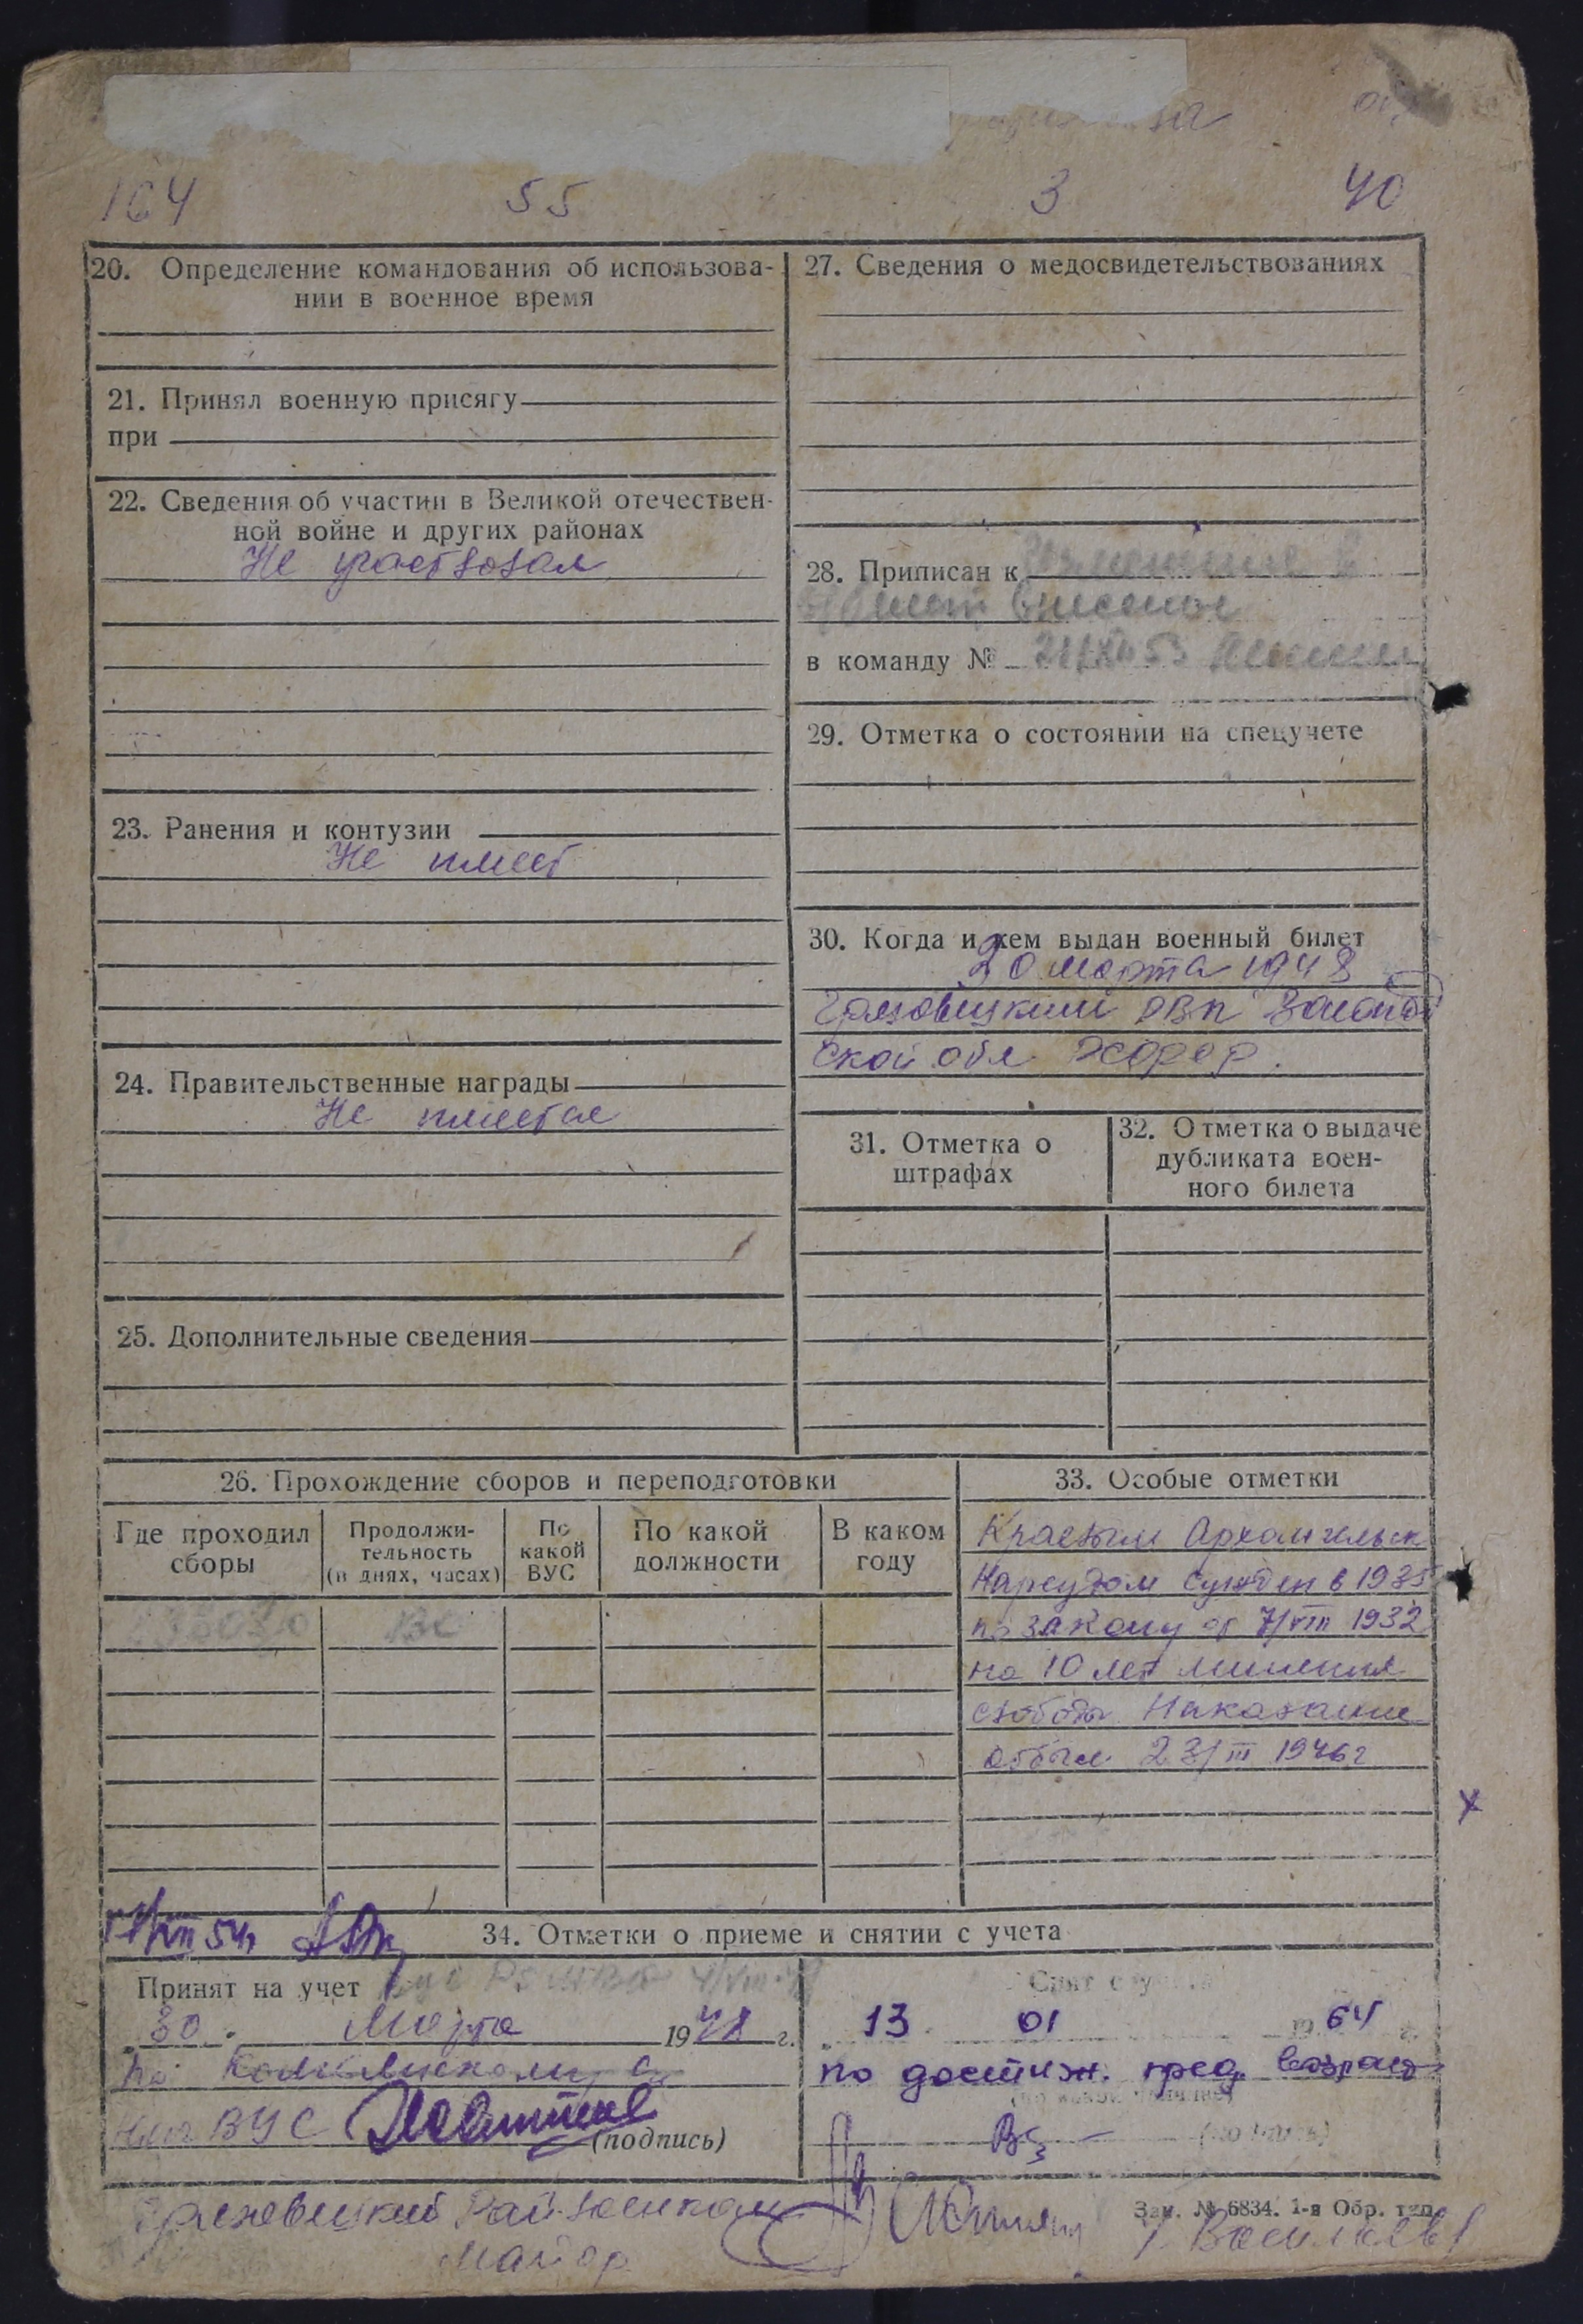 164 55 3 40
20. Определение командования об использова-
нии в военное время
21. Принял военную присягу
при
22. Сведения об участии в Великой отечествен-
ной войне и других районах
Не участвовал
23. Ранения и контузии
Не имеет
24. Правительственные награды
Не имеется
25. Дополнительные сведения
27. Сведения о медосвидетельствованиях
28. Приписан к
в команду №
29. Отметка о состоянии на спецучете
30. Когда и кем выдан военный билет
20 марта 1948
Грязовецкий РВК Вологод
ской обл
31. Отметка о
штрафах
32. Отметка о выдаче
дубликата воен-
ного билета
26. Прохождение сборов и переподготовки
Где проходил
сборы
Продолжи-
тельность
(в днях, часах)
По
какой
ВУС
По какой
должности
В каком
году
33. Особые отметки
Краевым Архангельск
Нарсудом сужден в 1935
по закону от 7/VIII 1932
на 10 лет лишения
свободы Наказание
отбыл 23/III 1946г
34. Отметки о приеме и снятии с учета
Принят на учет
30 Марта 1948 г.
ВУС
(подпись)
Снят с учета
13 01 1964 г.
по достиж. пред. возраст
(подпись)
Грязовецкий Райвоенком
Майор
Зак. № 6834. 1-я Обр. тип.
/Васильев/